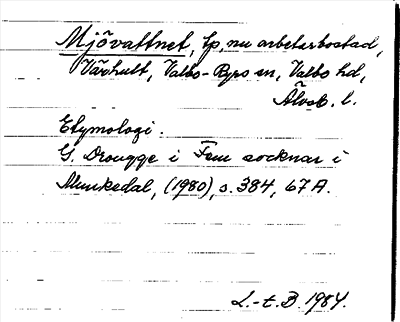 Mjövattnet, tp, nu arbetarbostad,
Vävhult, Valbo-Ryrs sn, Valbo hd,
Älvsb. l.
Etymologi.
G. Drougge i Fem socknar i
Munkedal, (1980), s. 384, 67A.
L.-t. B. 1984.